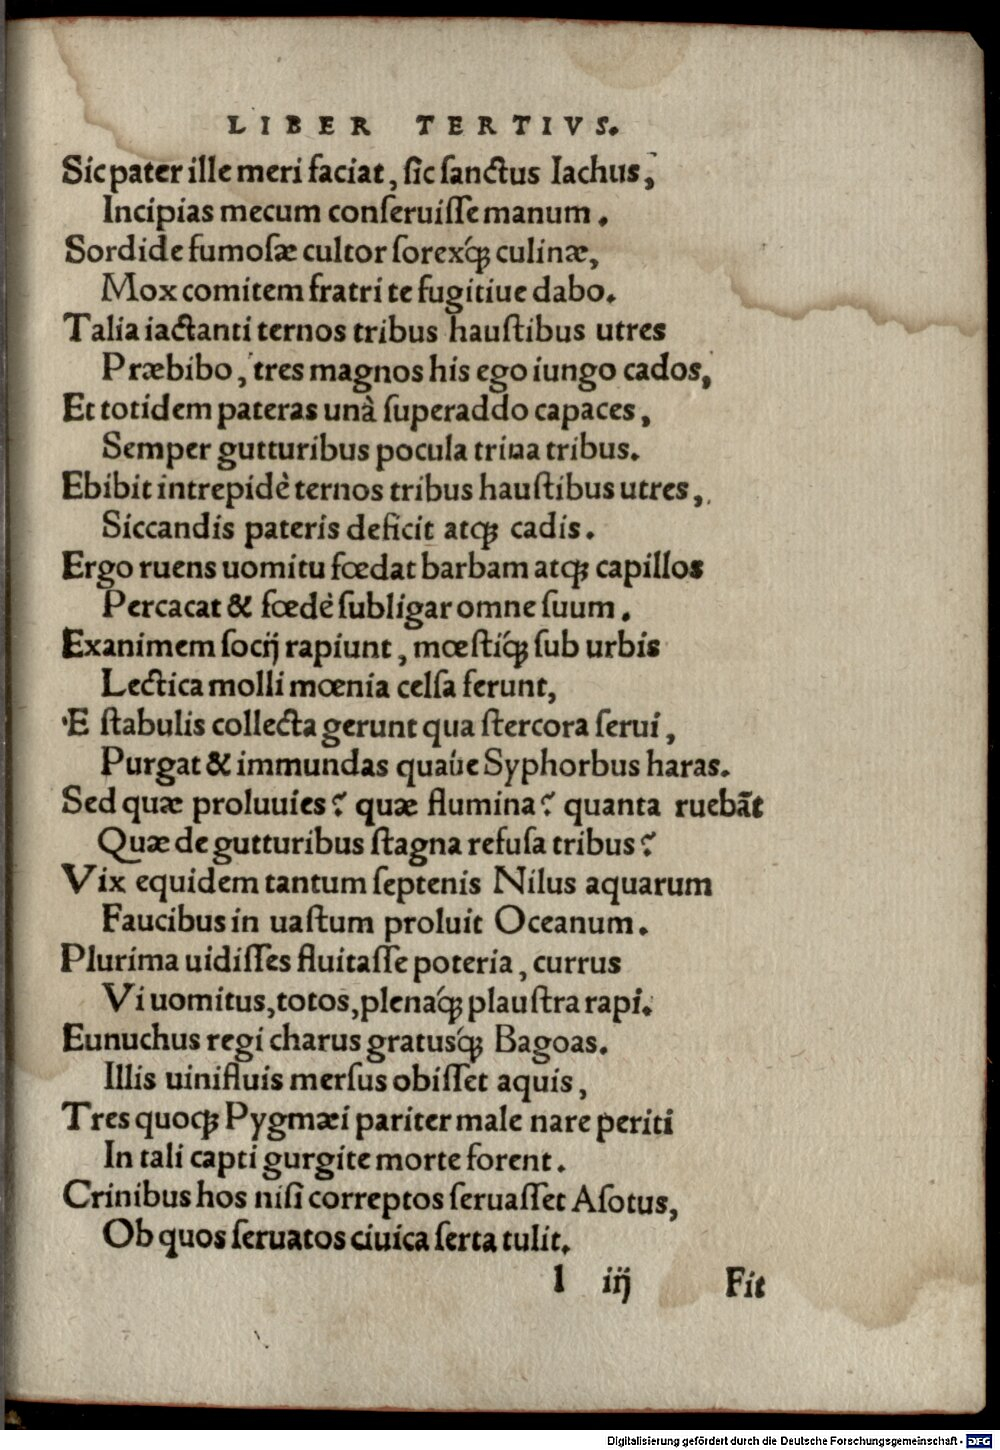 LIBER TERTIVS.
Sic pater ille meri faciat, sic sanctus Iachus,
Incipias mecum conseruisse manum.
Sordide fumosæ cultor sorexq́; culinæ,
Mox comitem fratri te fugitiue dabo.
Talia iactanti ternos tribus haustibus utres
Præbibo, tres magnos his ego iungo cados,
Et totidem pateras unà superaddo capaces,
Semper gutturibus pocula trina tribus.
Ebibit intrepidè ternos tribus haustibus utres,
Siccandis pateris deficit atq; cadis.
Ergo ruens uomitu fœdat barbam atq; capillos
Percacat & fœdè subligar omne suum.
Exanimem socij rapiunt, mœstiq́; sub urbis
Lectica molli mœnia celsa ferunt,
E stabulis collecta gerunt qua stercora serui,
Purgat & immundas quaúe Syphorbus haras.
Sed quæ proluuies? quæ flumina? quanta ruebãt
Quæ de gutturibus stagna refusa tribus?
Vix equidem tantum septenis Nilus aquarum
Faucibus in uastum proluit Oceanum.
Plurima uidisses fluitasse poteria, currus
Vi uomitus, totos, plenaq́; plaustra rapi.
Eunuchus regi charus gratusq́; Bagoas.
Illis uinifluis mersus obisset aquis,
Tres quoq; Pygmæi pariter male nare periti
In tali capti gurgite morte forent.
Crinibus hos nisi correptos seruasset Asotus,
Ob quos seruatos ciuica serta tulit.
l iij Fit
Digitalisierung gefördert durch die Deutsche Forschungsgemeinschaft - DFG